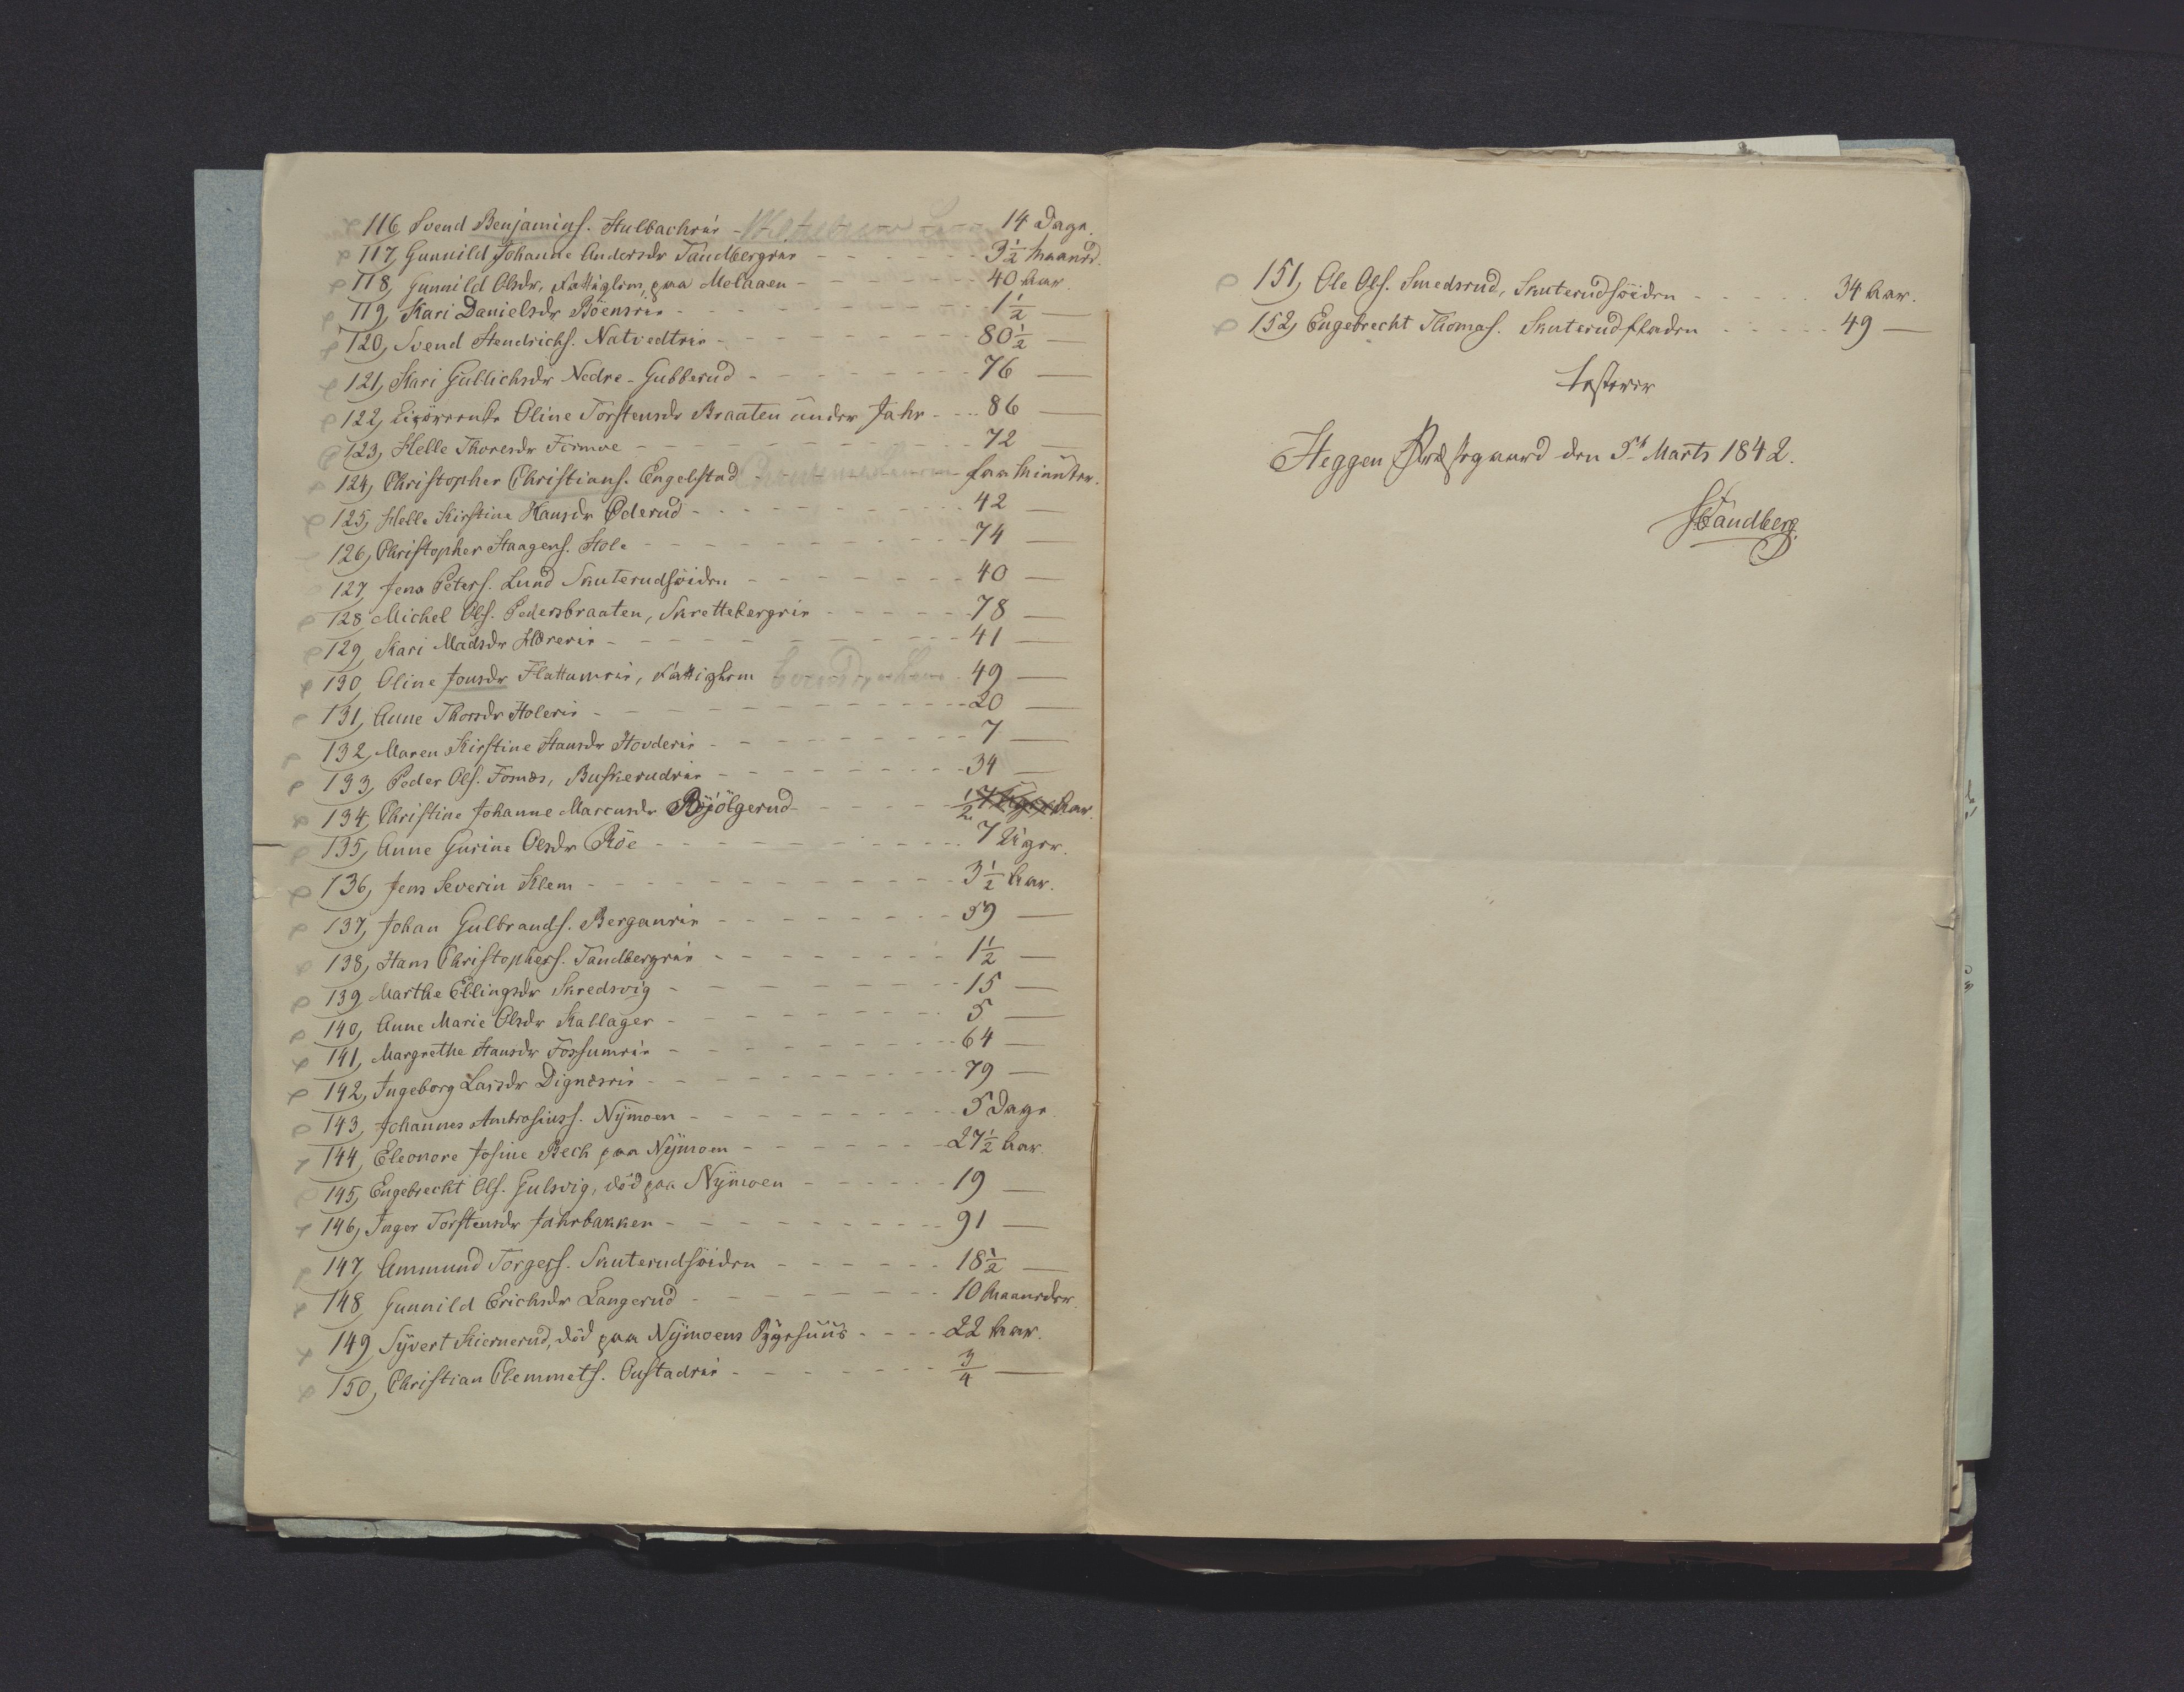 116, Svend Benjamins. Hulbachrie - - - - 14 Dage.
117, Gunnild Johanne Andersdr Tandbergrie - - - - 3 1/2 Maaned.
118, Gunnild Olsdr, Fattiglem, paa Melaaen - - - - 40 Aar.
119, Kari Danielsdr Böensrie - - - - 1 1/2 —
120, Svend Hendrichs. Natvedtrie - - - - 80 1/2 —
121, Kari Gullichsdr Nedre-Gubberud - - - - 76 —
122, Oline Torstensdr Braaten under Jahr - - - - 86 —
123, Helle Thoresdr Formoe - - - - 72 —
124, Christopher Christians. Engelstad - - - - faa Minuter.
125, Helle Kirstine Hansdr Ederud - - - - 42 —
126, Christopher Haagens. Hole - - - - 74 —
127, Jens Peters. Lund Skuterudsöiden - - - - 40 —
128, Michel Ols. Pedersbraaten, Skrettebergrie - - - - 78 —
129, Kari Madsdr Hærerie - - - - 41 —
130, Oline Jonsdr Flattumrie, Fattiglem 49 —
131, Anne Thorsdr Holerie - - - - 20 —
132, Maren Kirstine Hansdr Hovderie - - - - 7 —
133, Peder Ols. Fornæs, Buskerudrie - - - - 34 —
134, Christine Johanne Marcusdr Bjölgerud - - - - 1/2 7 Uger Aar.
135, Anne Gurine Olsdr Röe - - - - 7 Uger.
136, Jens Severin Klem - - - - 3 1/2 Aar.
137, Johan Gulbrands. Berganrie - - - - 59 —
138, Hans Christophers. Tandbergrie - - - - 1 1/2 —
139, Marthe Ellingsdr Skredsvig - - - - 15 —
140, Anne Marie Olsdr Kallager - - - - 5 —
141, Margrethe Hansdr Fossumrie - - - - 64 —
142, Ingeborg Larsdr Dignæsrie - - - - 79 —
143, Johannes Ambrosiuss. Nymoen - - - - 5 Dage.
144, Eleonore Josine Bech paa Nymoen - - - - 27 1/2 Aar.
145, Engebrecht Ols. Gulsvig, död paa Nymoen - - - - 19 —
146, Inger Torstensdr Jahrbakken - - - - 91 —
147, Ammund Torgers. Skuterudsöiden - - - - 18 1/2 —
148, Gunnild Erichsdr Langerud - - - - 10 Maaneder.
149, Syvert Kiernerud, död paa Nymoens Sygehuus - - - - 22 Aar.
150, Christian Clemmets. Oustadrie - - - - 3/4 —
151, Ole Ols. Smedsrud, Skuterudsöiden - - - - 34 Aar.
152, Engebrecht Thomas. Skuterudfladen - - - - 49 —
testerer
Heggen Præstegaard den 5te Marts 1842.
Tandberg